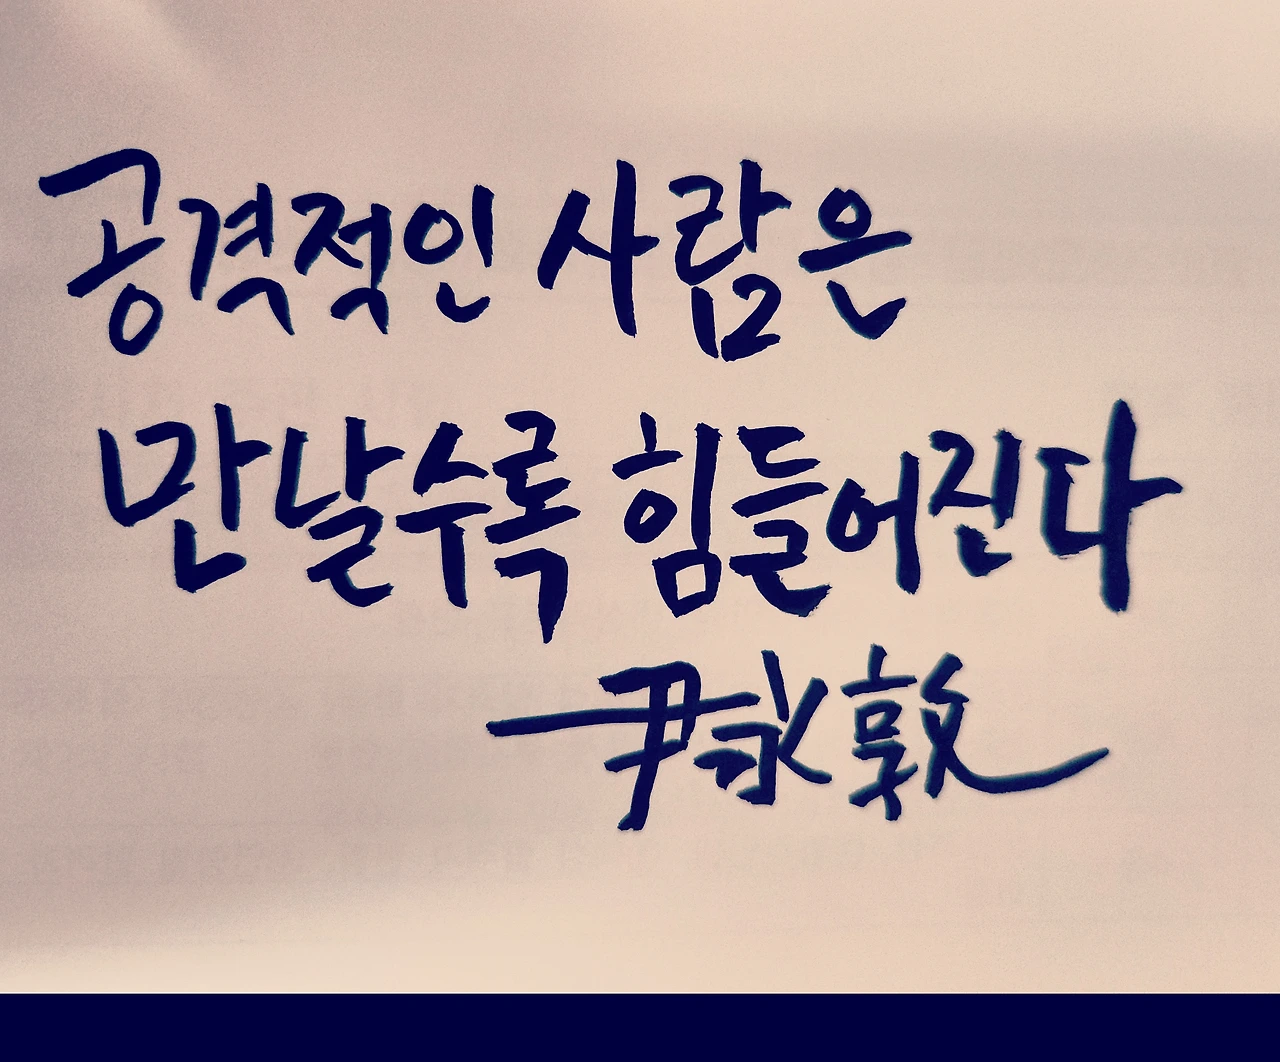 공격적인 사람은
만날수록 힘들어진다
尹永敦